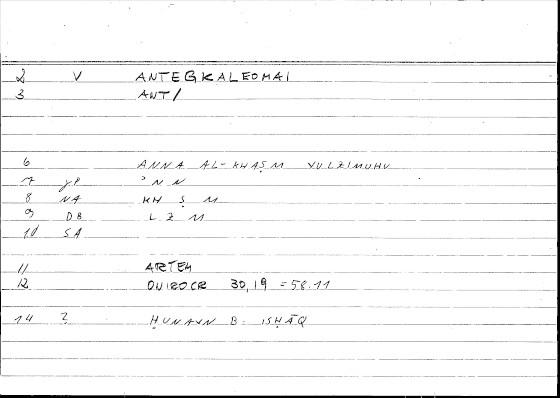 2 V ANTEGKALEOMAI
3 ANT/
6 ANNA AL-KHAṢM YULZIMUHU
7 JP ʾNN
8 NA KH Ṣ M
9 DB L Z M
10 SA
11 ARTEM
12 ONIROCR 30,19 =58.11
14 2 ḤUNAYN B. ISḤĀQ